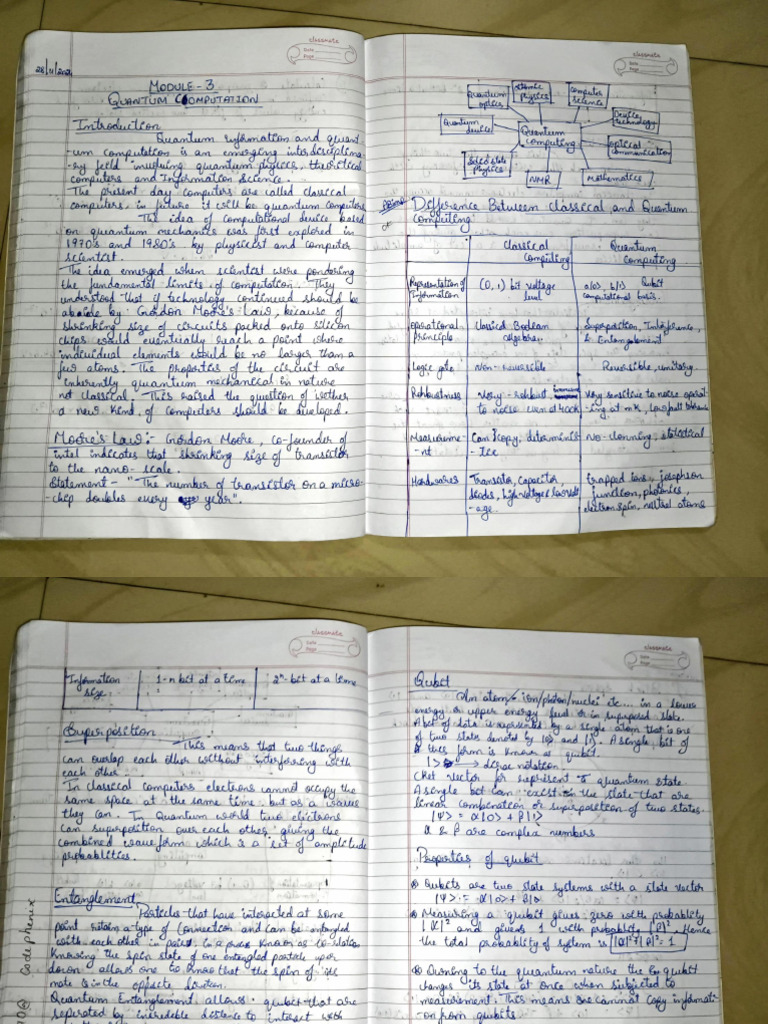 classmate
Date
Page
28/11/202
MODULE-3
QUANTUM COMPUTATION
Introduction
Quantum information and quant
-um computation is an emerging interdisciplina
-ry field involving quantum physics, theoritical
computers and Information science.
The present day computers are called classical
computers, in future it will be quantum computers
The idea of computational device based
on quantum mechanics was first explored in
1970's and 1980's by physicist and computer
scientist.
The idea emerged when scientist were pondering
the fundamental limits of computation. They
understood that if technology continued should be
abaide by Gordon Moore's Law, because of
shrinking size of circuits packed onto silicon
chips would eventually reach a point where
individual elements would be no larger than a
few atoms. The properties of the circuit are
inherently quantum mechanical in nature
not classical. This raised the question of
a new kind of computers should be developed.
Moore's Law:- Gordon Moore, co-founder of
intel indicates that shrinking size of transistor
to the nano-scale.
Statement - "The number of transistor on a micro-
-chip doubles every year".
classmate
Date
Page
Quantum optics
Atomic Physics
Computer Science
Quantum device
Quantum Computing
Device technology
optical communication
Solid state Physics
NMR
Mathematics
Difference Between Classical and Quantum
Computing
Classical Computing
Quantum Computing
Representation of Information
(0,1) bit voltage level
a|0>, b|1> Qubit computational basis.
operational principle
Classical Boolean algebra.
Superposition, Interference, & Entanglement
Logic gate
Non-reversible
Reversible, unitary.
Robustness
Very-robust to noise even at 400k
very sensitive to noise operat-ing at mK, low fault tolerance
Measureme-nt
Can copy, determinis-tic
no-cloning, statistical
Hardwares
Transistor, capacitor, diodes, high voltage low volt-age.
trapped ions, josephson junction, photonics, electron spin, neutral atoms
classmate
Date
Page
Information size.
1-n bit at a time
2ⁿ-bit at a time
Superposition
This means that two things
can overlap each other without interfering with
each other.
In classical computers electrons cannot occupy the
same space at the same time but as a waves
they can. In Quantum world two electrons
can superposition over each other giving the
combined waveform which is a set of amplitude
probablities.
Entanglement
Particles that have interacted at some
point retain a type of Connection and can be entangled
with each other in pairs in a process known as
Knowing the spin state of one entangled particle up or
down allows one to know that the spin of its
mate is in the opposite direction.
Quantum Entanglement allows qubit that are
seperated by incredible distence to interact with
classmate
Date
Page
Qubit
An atom ion/photon/nuclei etc... in a lower
energy or upper energy level or in superposed state.
A bit of data is represented by a single atom that is one
of two states denoted by |0> and |1>. A single bit of
this form is known as qubit.
|> → dirac notation.
(Ket vector for represent a quantum state.
A single bit can exist in the state that are
linear combination or superposition of two states.
|Ψ> = α|0> + β|1>
α & β are complex numbers
Properties of qubit
Qubits are two state systems with a state vector
|Ψ> = α|0> + β|1>
Measuring a qubit gives zero with probablity
|α|² and gives 1 with probablity |β|². Hence
the total probablity of system is |α|²+|β|²=1
Owning to the quantum nature the qubit
changes its state at once when subjected to
measurement. This means one cannot copy informati
-on from qubits